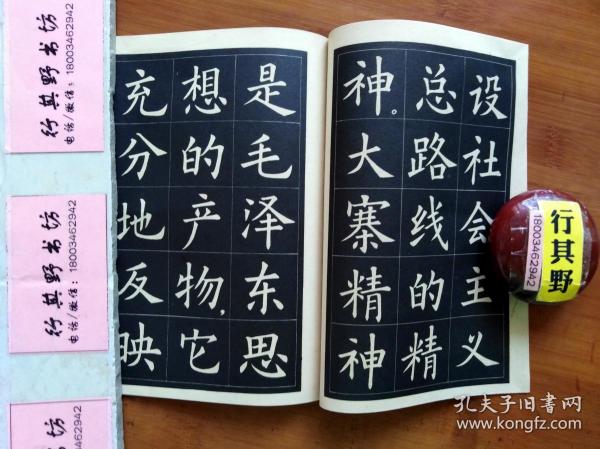 设社会主义
总路线的精
神。大寨精神
是毛泽东思
想的产物，它
充分地反映
行其野书坊
电话/微信：18003462942
行其野书坊
电话/微信：18003462942
野书坊
行其野
18003462942
孔夫子旧书网
www.kongfz.com